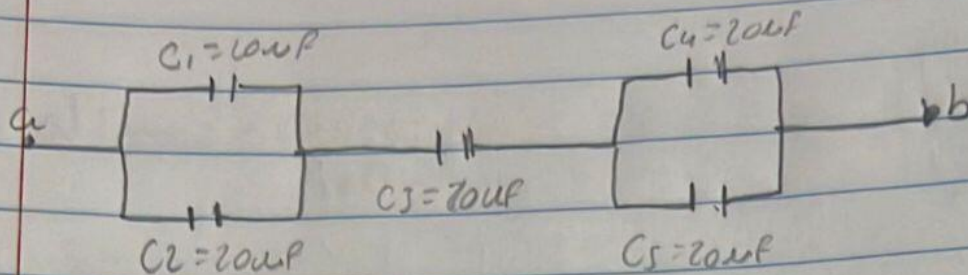 C1=20uf
C4=20uf
a
b
C3=20uf
C2=20uf
C5=20uf